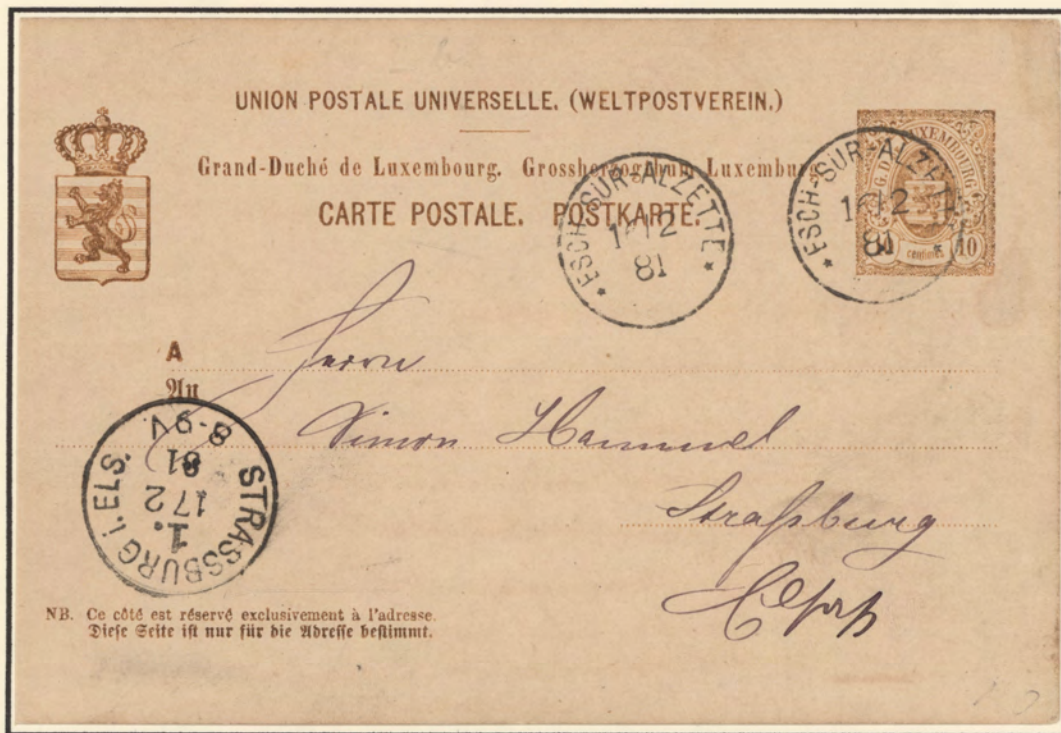 UNION POSTALE UNIVERSELLE. (WELTPOSTVEREIN.)
Grand-Duché de Luxembourg. Grossherzogthum Luxemburg.
CARTE POSTALE. POSTKARTE.
G. D. LUXEMBOURG
10 centimes 10
* ESCH-SUR-ALZETTE *
81
* ESCH-SUR-ALZETTE *
81
A Herrn
An
Simon Hammel
Straßburg
Elsaß
STRASSBURG i. ELS.
1.
17 2
81
8-9V.
NB. Ce côté est réservé exclusivement à l'adresse.
Diese Seite ist nur für die Adresse bestimmt.